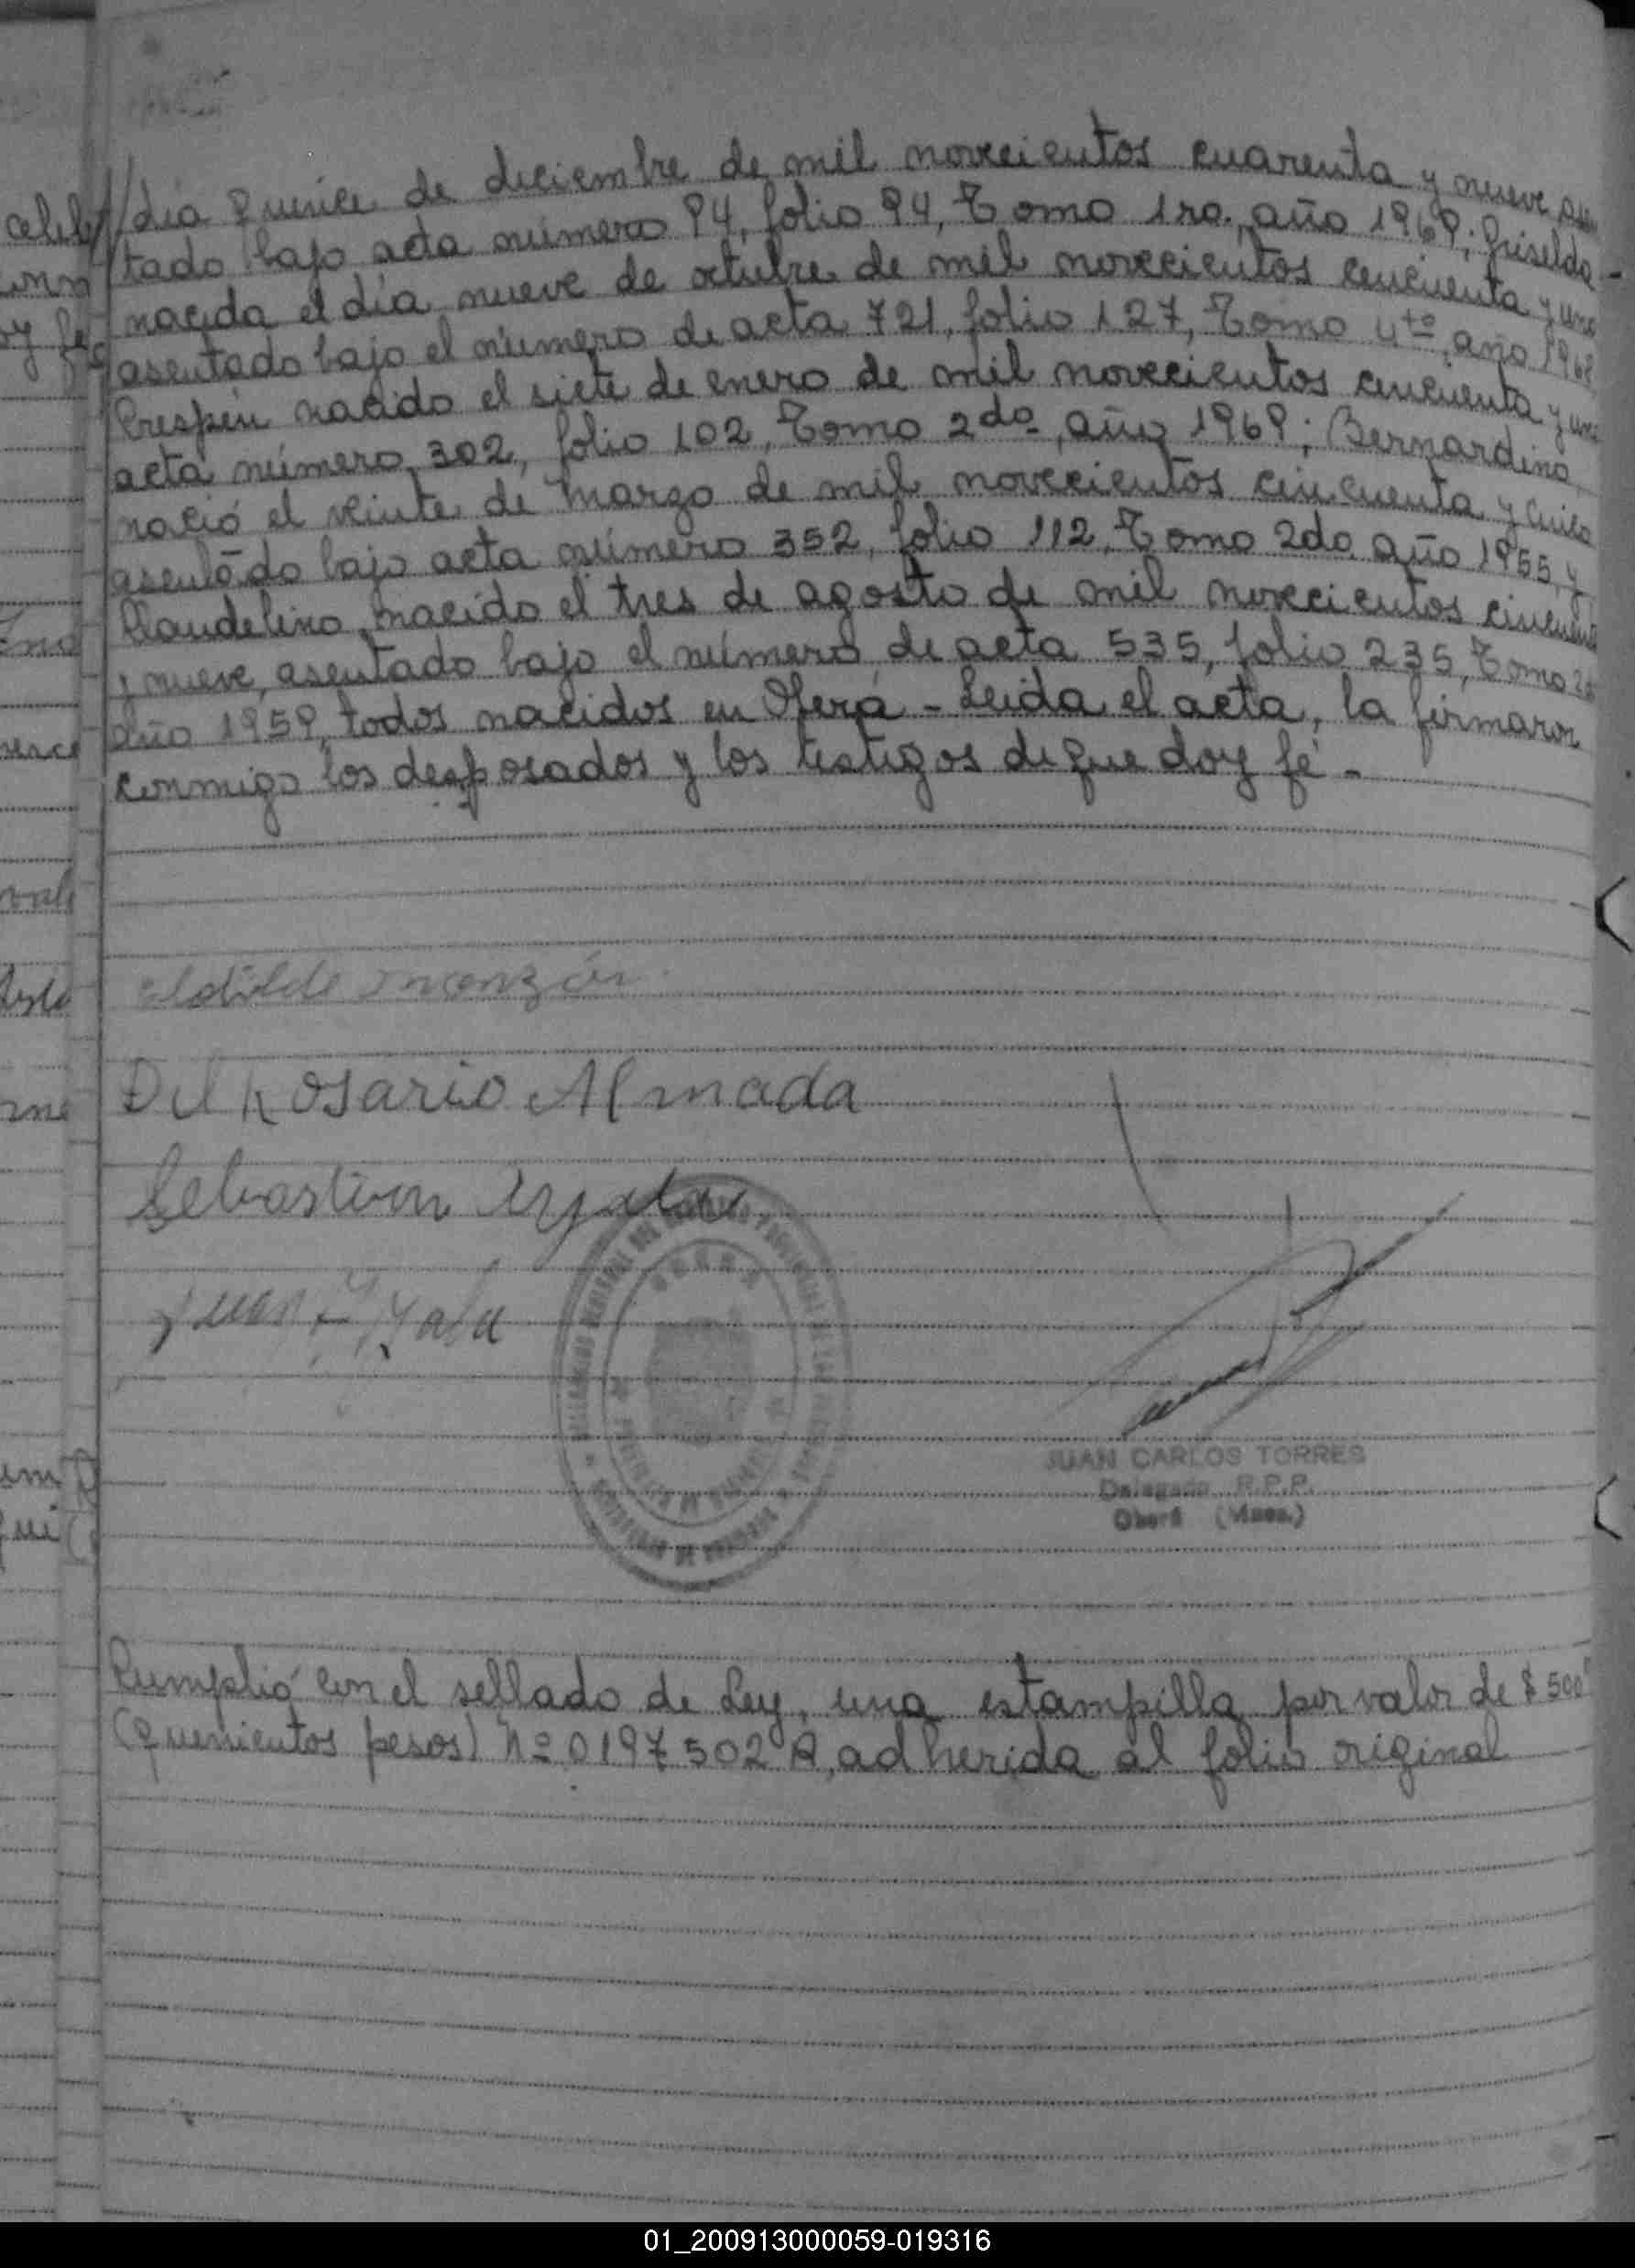 día quince de diciembre de mil novecientos cuarenta y nueve asen
tado bajo acta número 94, folio 94, Tomo 1ro., año 1969; Griselda
nacida el día nueve de octubre de mil novecientos cincuenta y uno
asentado bajo el número de acta 721, folio 127, Tomo 4to, año 1968
Crespín nacido el siete de enero de mil novecientos cincuenta y uno
acta número 302, folio 102, Tomo 2do, año 1969; Bernardino
nació el veinte de Marzo de mil novecientos cincuenta y cinco
asentado bajo acta número 352, folio 112, Tomo 2do, año 1955, y
Claudelino, nacido el tres de agosto de mil novecientos cincuenta
y nueve, asentado bajo el número de acta 535, folio 235, Tomo 2do
año 1959, todos nacidos en Oberá - Leida el acta, la firmaron
conmigo los desposados y los testigos de que doy fé -
Monzón
Del Rosario Almada
Sebastian Ayala
Juan Ayala
JUAN CARLOS TORRES
Delegado R.P.P.
Oberá (Mnes.)
Cumplió con el sellado de Ley, una estampilla por valor de $ 500
(quinientos pesos) Nº 0197502 A, adherida al folio original
01_200913000059-019316